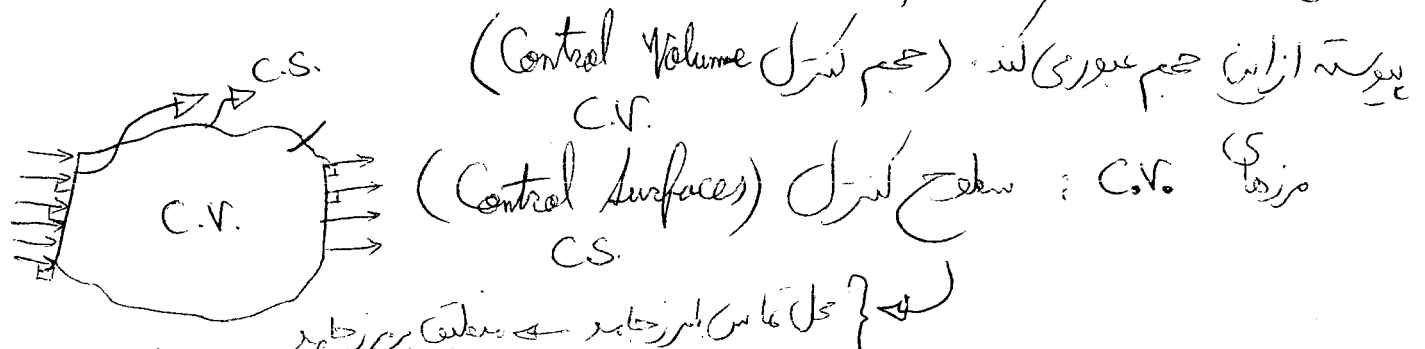 پیوسته از این حجم عبور می‌کند. (حجم کنترل Control Volume)
C.V.
مرزهای C.V. : سطوح کنترل (Control Surfaces)
C.S.
محل تماس با مرز جامد ← منطبق بر مرز جامد
C.S.
C.V.